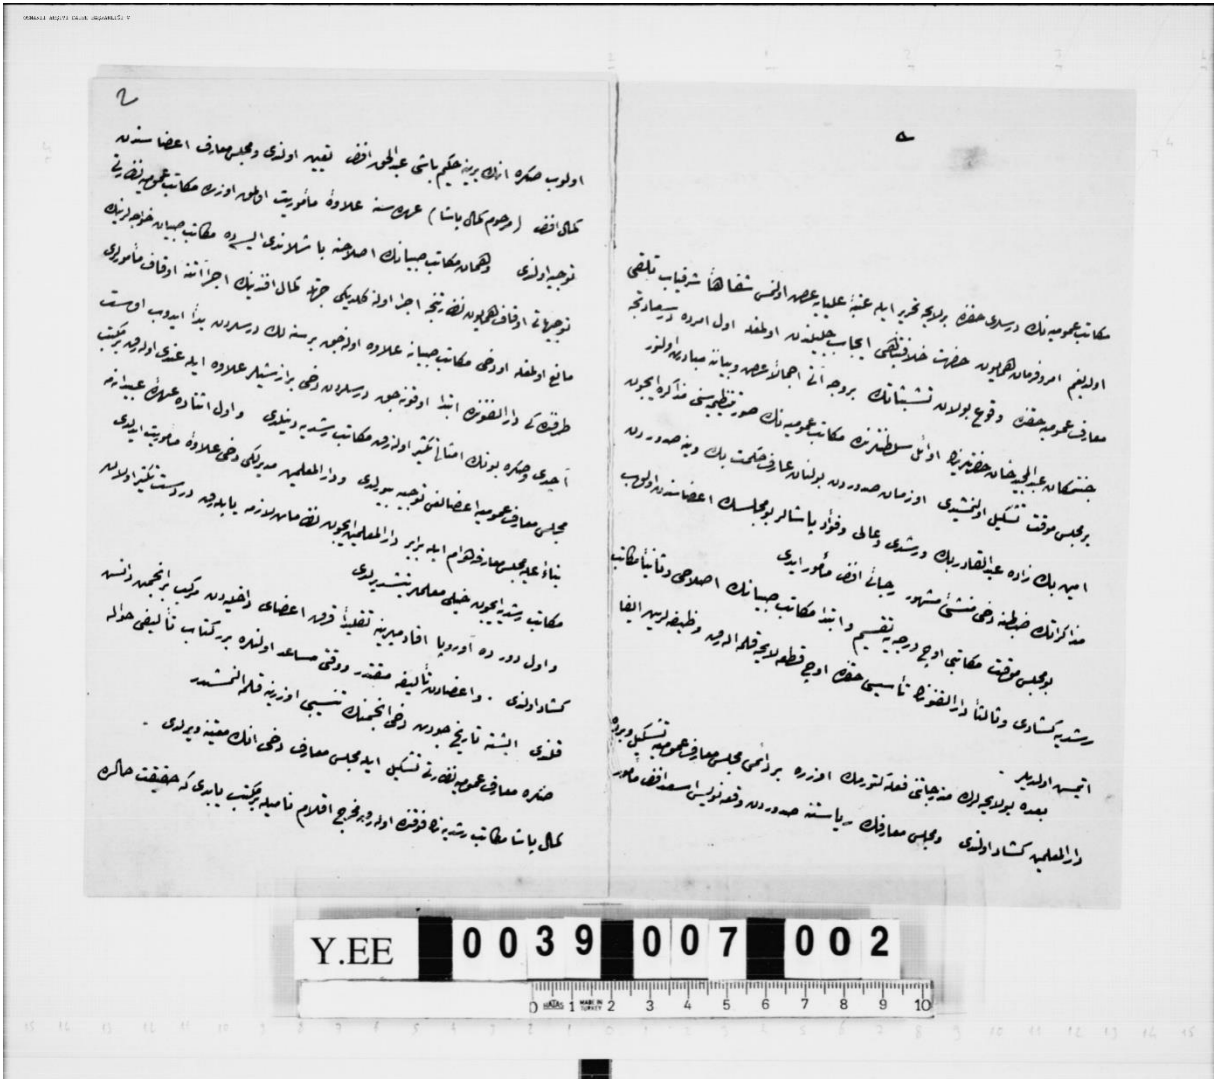 OSMANLI ARŞİVİ DAİRE BAŞKANLIĞI
مكاتب عموميه‌نك درسلرى حقنده بر لايحه تحرير ايله عتبۀ علیایه عرض اولنمسى شفاهاً شرفياب تلقى
اولديغم امر و فرمان همايون حضرت خلافتپناهى ايجاب جليلندن اولمغله اول امرده درسعادتجه
معارف عموميه حقنده وقوع بولان تشبثاتك بر وجه آتى اجمالاً عرض و بيانه مبادرت اولنور
جنتمكان عبد المجيد خان حضرتلرينك اوائل سلطنتلرنده مكاتب عموميه‌نك صورت تنظيمى مذاكره ايچون
بر مجلس موقت تشكيل اولنمشيدى اوزمان صدوردن بولنان عارف حكمت بك وينه صدوردن
امين بك زاده عبد القادر بك ورشدى وعالى وفؤاد پاشالر بو مجلسك اعضاسندن اولوب
مذاكراتك ضبطنه دخى منشئ مشهور رجائى افندى مأمور ايدى
بو مجلس موقت مكاتبى اوچ درجه‌يه تقسيم وابتدا مكاتب صبيانك اصلاحى وثانياً مكاتب
رشديه كشادى وثالثاً دار الفنونك تأسيسى حقنده اوچ قطعه لايحه قلمه الهرق وظيفه‌لرينى ايفا
ايتمش اولديلر .
بعده بو لايحه‌لرك مندرجاتنى فعله كتورمك اوزره بر دائمى مجلس معارف عموميه تشكيل وبرده
دار المعلمين كشاد اولندى ومجلس معارفك رياستنه صدوردن وقعه نويس اسعد افندى مأمور
٢
اولوب صكره انك يرينه حكيم باشى عبد الحق افندى تعيين اولندى ومجلس معارف اعضاسندن
كمال افندى (مرحوم كمال پاشا) عهده‌سنه علاوۀ مأموريت اولمق اوزره مكاتب عموميه نظارتى
توجيه اولندى وهمان مكاتب صبيانك اصلاحنه باشلاندى ايسه‌ده مكاتب صبيان خواجه‌لرينك
توجيهاتى اوقاف همايون نظارتنجه اجرا اولنه كلديكى جهتله كمال افندينك اجراآتنه اوقاف مأمورلرى
مانع اولمغله اودخى مكاتب صبيانه علاوه اولنه‌جق بر سنه‌لك درسلردن بدأ ايدوب اوست
طرفنده‌كى دار الفنونده ابتدا اوقونه‌جق درسلردن دخى براز شيلر علاوه ايله عندى اوله‌رق بر مكتب
آچدى وصكره بونك امثالى تكثير اوله‌رق مكاتب رشديه دينلدى واول اثناده عهدۀ عبيدانه‌مه
مجلس معارف عموميه اعضالغى توجيه بيورلدى ودار المعلمين مديرلكى دخى علاوۀ مأموريت ايدلدى
بناءً عليه مجلس معارفه دوام ايله برابر دار المعلمين ايچون نظامات لازمه ياپيله‌رق دردست تكثير اولان
مكاتب رشديه ايچون خيلى معلملر يتشديرلدى
واول دورده آوروپا اقاديميلرينه تقليداً قرق اعضاى داخليه‌دن مركب بر انجمن دانش
كشاد اولندى . واعضادن تأليفه مقتدر ووقتى مساعد اولنلره برر كتاب تأليفى حواله
قلندى البته تاريخ جودت دخى انجمنك تنسيبى اوزرينه قلمه النمشدر
صكره معارف عموميه نظارتى تشكيل ايله مجلس معارف دخى انك معيتنه ويرلدى .
كمال پاشا مكاتب رشديه‌نك فوقنده اوله‌رق مخرج اقلام ناميله بر مكتب ياپدى كه حقيقت حالده
Y.EE 0039 007 002
0 1 MADE IN TURKEY 2 3 4 5 6 7 8 9 10